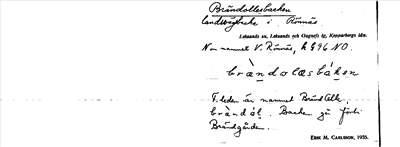 Brändollesbacken
landsvägsbacke i Römäs
Leksands sn, Leksands och Gagnefs tg, Kopparbergs län.
N om namnet V. Römäs, k 996 NO.
bràndolæsbáken
F. leden är namnet Bränd Olle,
bràndól. Backen går förbi
Brändgården.
ERIK M. CARLSSON, 1935.